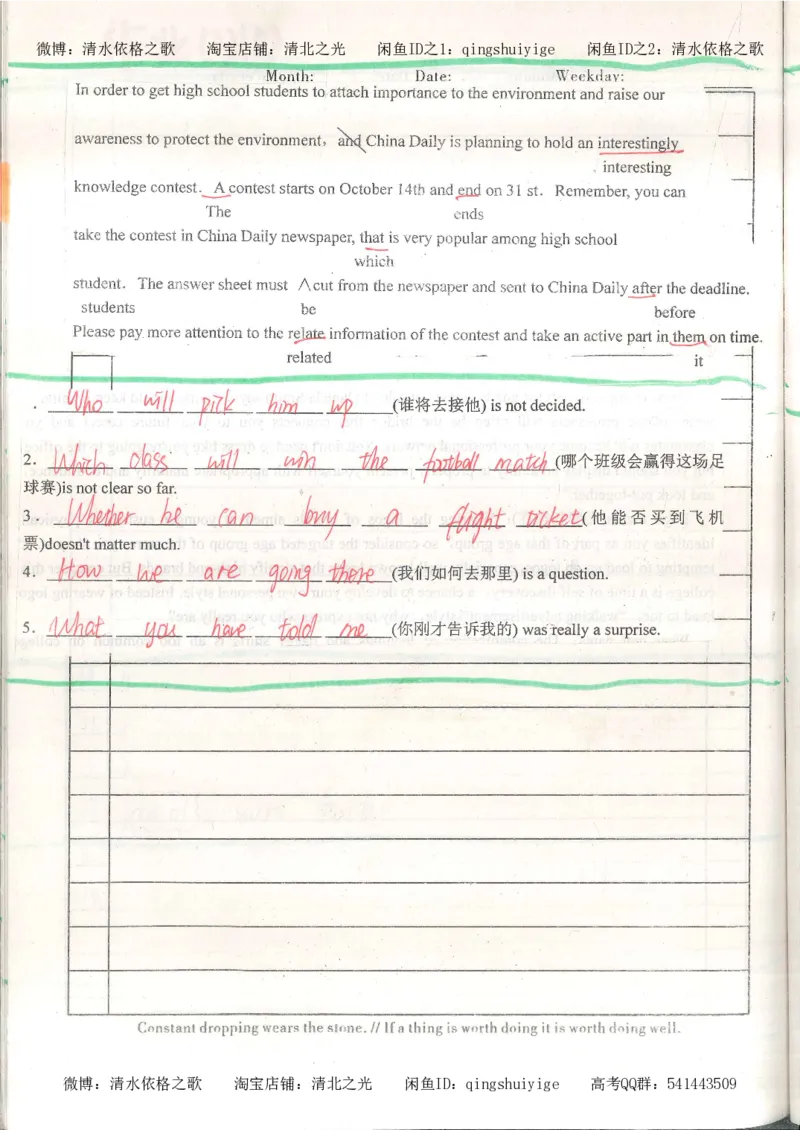 微博：清水依格之歌 淘宝店铺：清北之光 闲鱼ID之1：qingshuiyige 闲鱼ID之2：清水依格之歌
Month: Date: Weekday:
In order to get high school students to attach importance to the environment and raise our
awareness to protect the environment, and China Daily is planning to hold an interestingly
interesting
knowledge contest. A contest starts on October 14th and end on 31 st. Remember, you can
The ends
take the contest in China Daily newspaper, that is very popular among high school
which
student. The answer sheet must ∧cut from the newspaper and sent to China Daily after the deadline.
students be before
Please pay more attention to the relate information of the contest and take an active part in them on time.
related it
. Who will pick him up (谁将去接他) is not decided.
2. Which class will win the football match (哪个班级会赢得这场足
球赛)is not clear so far.
3. Whether he can buy a flight ticket(他能否买到飞机
票)doesn't matter much.
4. How we are going there (我们如何去那里) is a question.
5. What you have told me (你刚才告诉我的) was really a surprise.
Constant dropping wears the stone. // If a thing is worth doing it is worth doing well.
微博：清水依格之歌 淘宝店铺：清北之光 闲鱼ID：qingshuiyige 高考QQ群：541443509